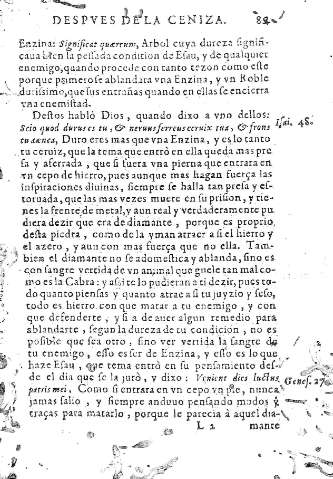 DESPVES DE LA CENIZA. 84
Enzina: Significat quærrum, Arbol cuya dureza signifi-
caua bien la pessada condition de Esau, y de qualquier
enemigo, quando procede con tanto tezon como este
porque primero se ablandara vna Enzina, y vn Roble
durissimo, que sus entrañas quando en ellas se encierra
vna enemistad.
Destos habló Dios, quando dixo a vno dellos:
Scio quod durus es tu, & neruus ferreus ceruix tua, & frons
tua ænea, Duro eres mas que vna Enzina, y es lo tanto
tu ceruiz, que la tema que entró en ella queda mas pre
sa y aferrada, que si fuera vna pierna que entrara en
vn cepo de hierro, pues aunque mas hagan fuerça las
inspiraciones diuinas, siempre se halla tan presa y es-
toruada, que las mas vezes muere en su prision, y tie-
nes la frente de metal, y aun real y verdaderamente pu
diera dezir que era de diamante, porque es proprio
desta piedra, como de la yman atraer a si el hierro y
el azero, y aun con mas fuerça que no ella. Tam-
bien el diamante no se adomestica y ablanda, sino es
con sangre vertida de vn animal que huele tan mal co-
mo es la Cabra: y assi te lo pudieran a ti dezir, pues to-
do quanto piensas y quanto atrae a si tu juyzio y seso,
todo es hierro con que matar a tu enemigo, y con
que defenderte, y si a de auer algun remedio para
ablandarte, segun la dureza de tu condicion, no es
posible que sea otro, sino ver vertida la sangre de
tu enemigo, esso es ser de Enzina, y esso es lo que
haze Esau, que tema entrò en su pensamiento des-
de el dia que se la jurò, y dixo: Venient dies luctus
patris mei. Como si entrara en vn cepo vn pie, nunca
jamas salio, y siempre anduuo pensando modos y
traças para matarlo, porque le parecia à aquel dia-
L 2 mante
Isai. 48.
Genes. 27